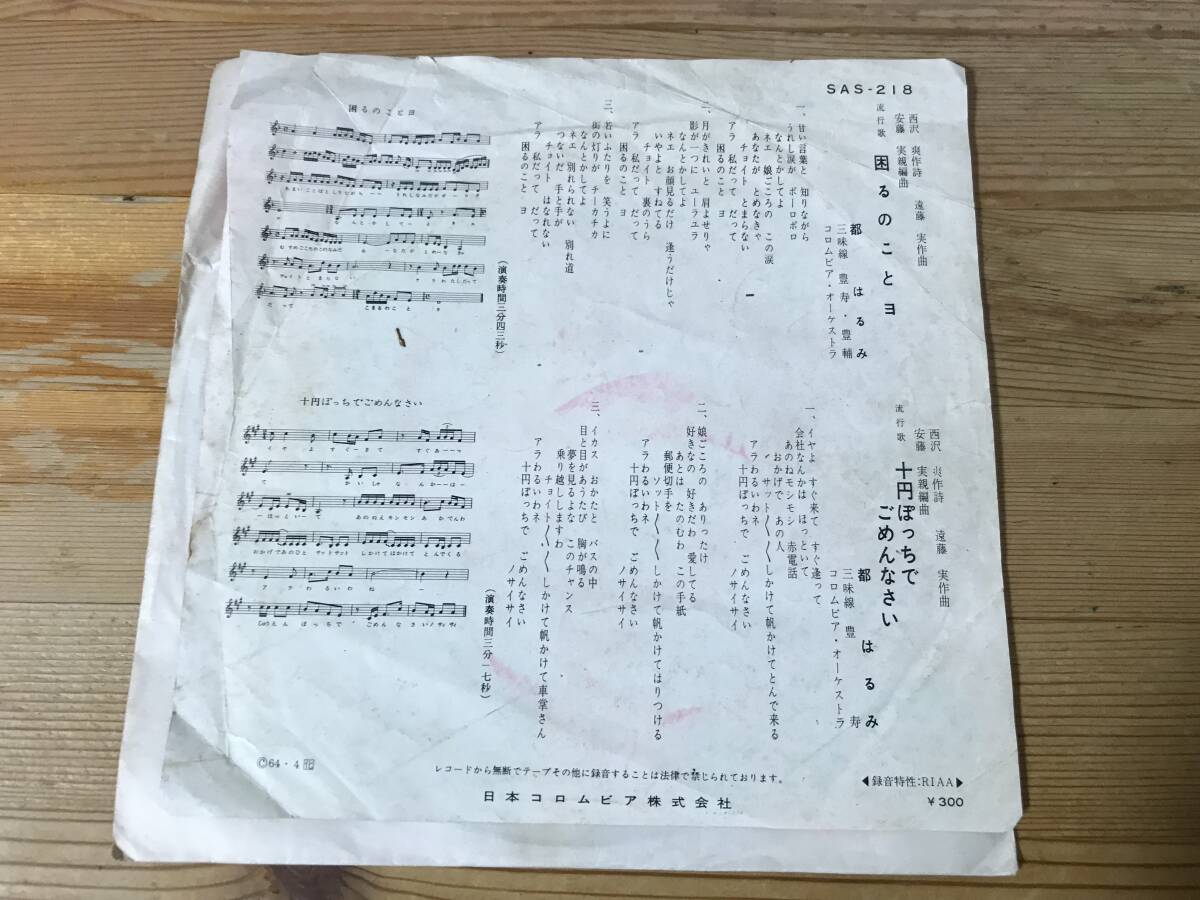 SAS-218
西沢 爽作詩 遠藤 実作曲
安藤 実親編曲
流行歌 困るのことヨ
都 はるみ
三味線 豊寿・豊輔
コロムビア・オーケストラ
一、甘い言葉と 知りながら
うれし涙が ポーロポロ
なんとかしてよ
ネエ 娘ごころの この涙
あなたが とめなきゃ
チョイト とまらない
アラ 私だって だって
困るのこと ヨ
二、月がきれいと 肩よせりゃ
影が一つに ユーラユラ
なんとかしてよ
ネエ お顔見るだけ 逢うだけじゃ
いやよと すねてる
チョイト 裏のうら
アラ 私だって だって
困るのこと ヨ
三、若いふたりを 笑うよに
街の灯りが チーカチカ
なんとかしてよ
ネエ 別れられない 別れ道
つないだ 手と手が
チョイト はなれない
アラ 私だって だって
困るのこと ヨ
(演奏時間二分四三秒)
困るのことヨ
西沢 爽作詩 遠藤 実作曲
安藤 実親編曲
流行歌 十円ぽっちで
ごめんなさい
都 はるみ
三味線 豊寿
コロムビア・オーケストラ
一、イヤよ すぐ来て すぐ逢って
会社なんかは ほっといて
あのねモシモシ 赤電話
おかげで あの人
サット〱〱しかけて帆かけてとんで来る
アラわるいわネ
十円ぽっちで ごめんなさい
ノサイサイ
二、娘ごころの ありったけ
好きなの 好きだわ 愛してる
あとは たのむわ この手紙
郵便切手を
ソット〱〱しかけて帆かけてはりつける
アラわるいわネ
十円ぽっちで ごめんなさい
ノサイサイ
三、イカス おかたと バスの中
目と目があうたび 胸が鳴る
夢を見るよな このチャンス
乗り越ししますわ
チョイト〱〱しかけて帆かけて車掌さん
アラわるいわネ
十円ぽっちで ごめんなさい
ノサイサイ
(演奏時間三分一七秒)
十円ぽっちでごめんなさい
Ⓒ64・4
レコードから無断でテープその他に録音することは法律で禁じられております。
日本コロムビア株式会社
◀録音特性:RIAA▶
¥300